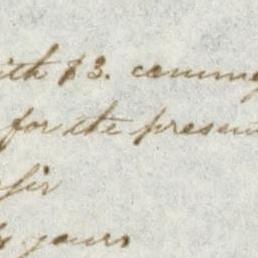 ith $3. coming
for the presen
sir
yours